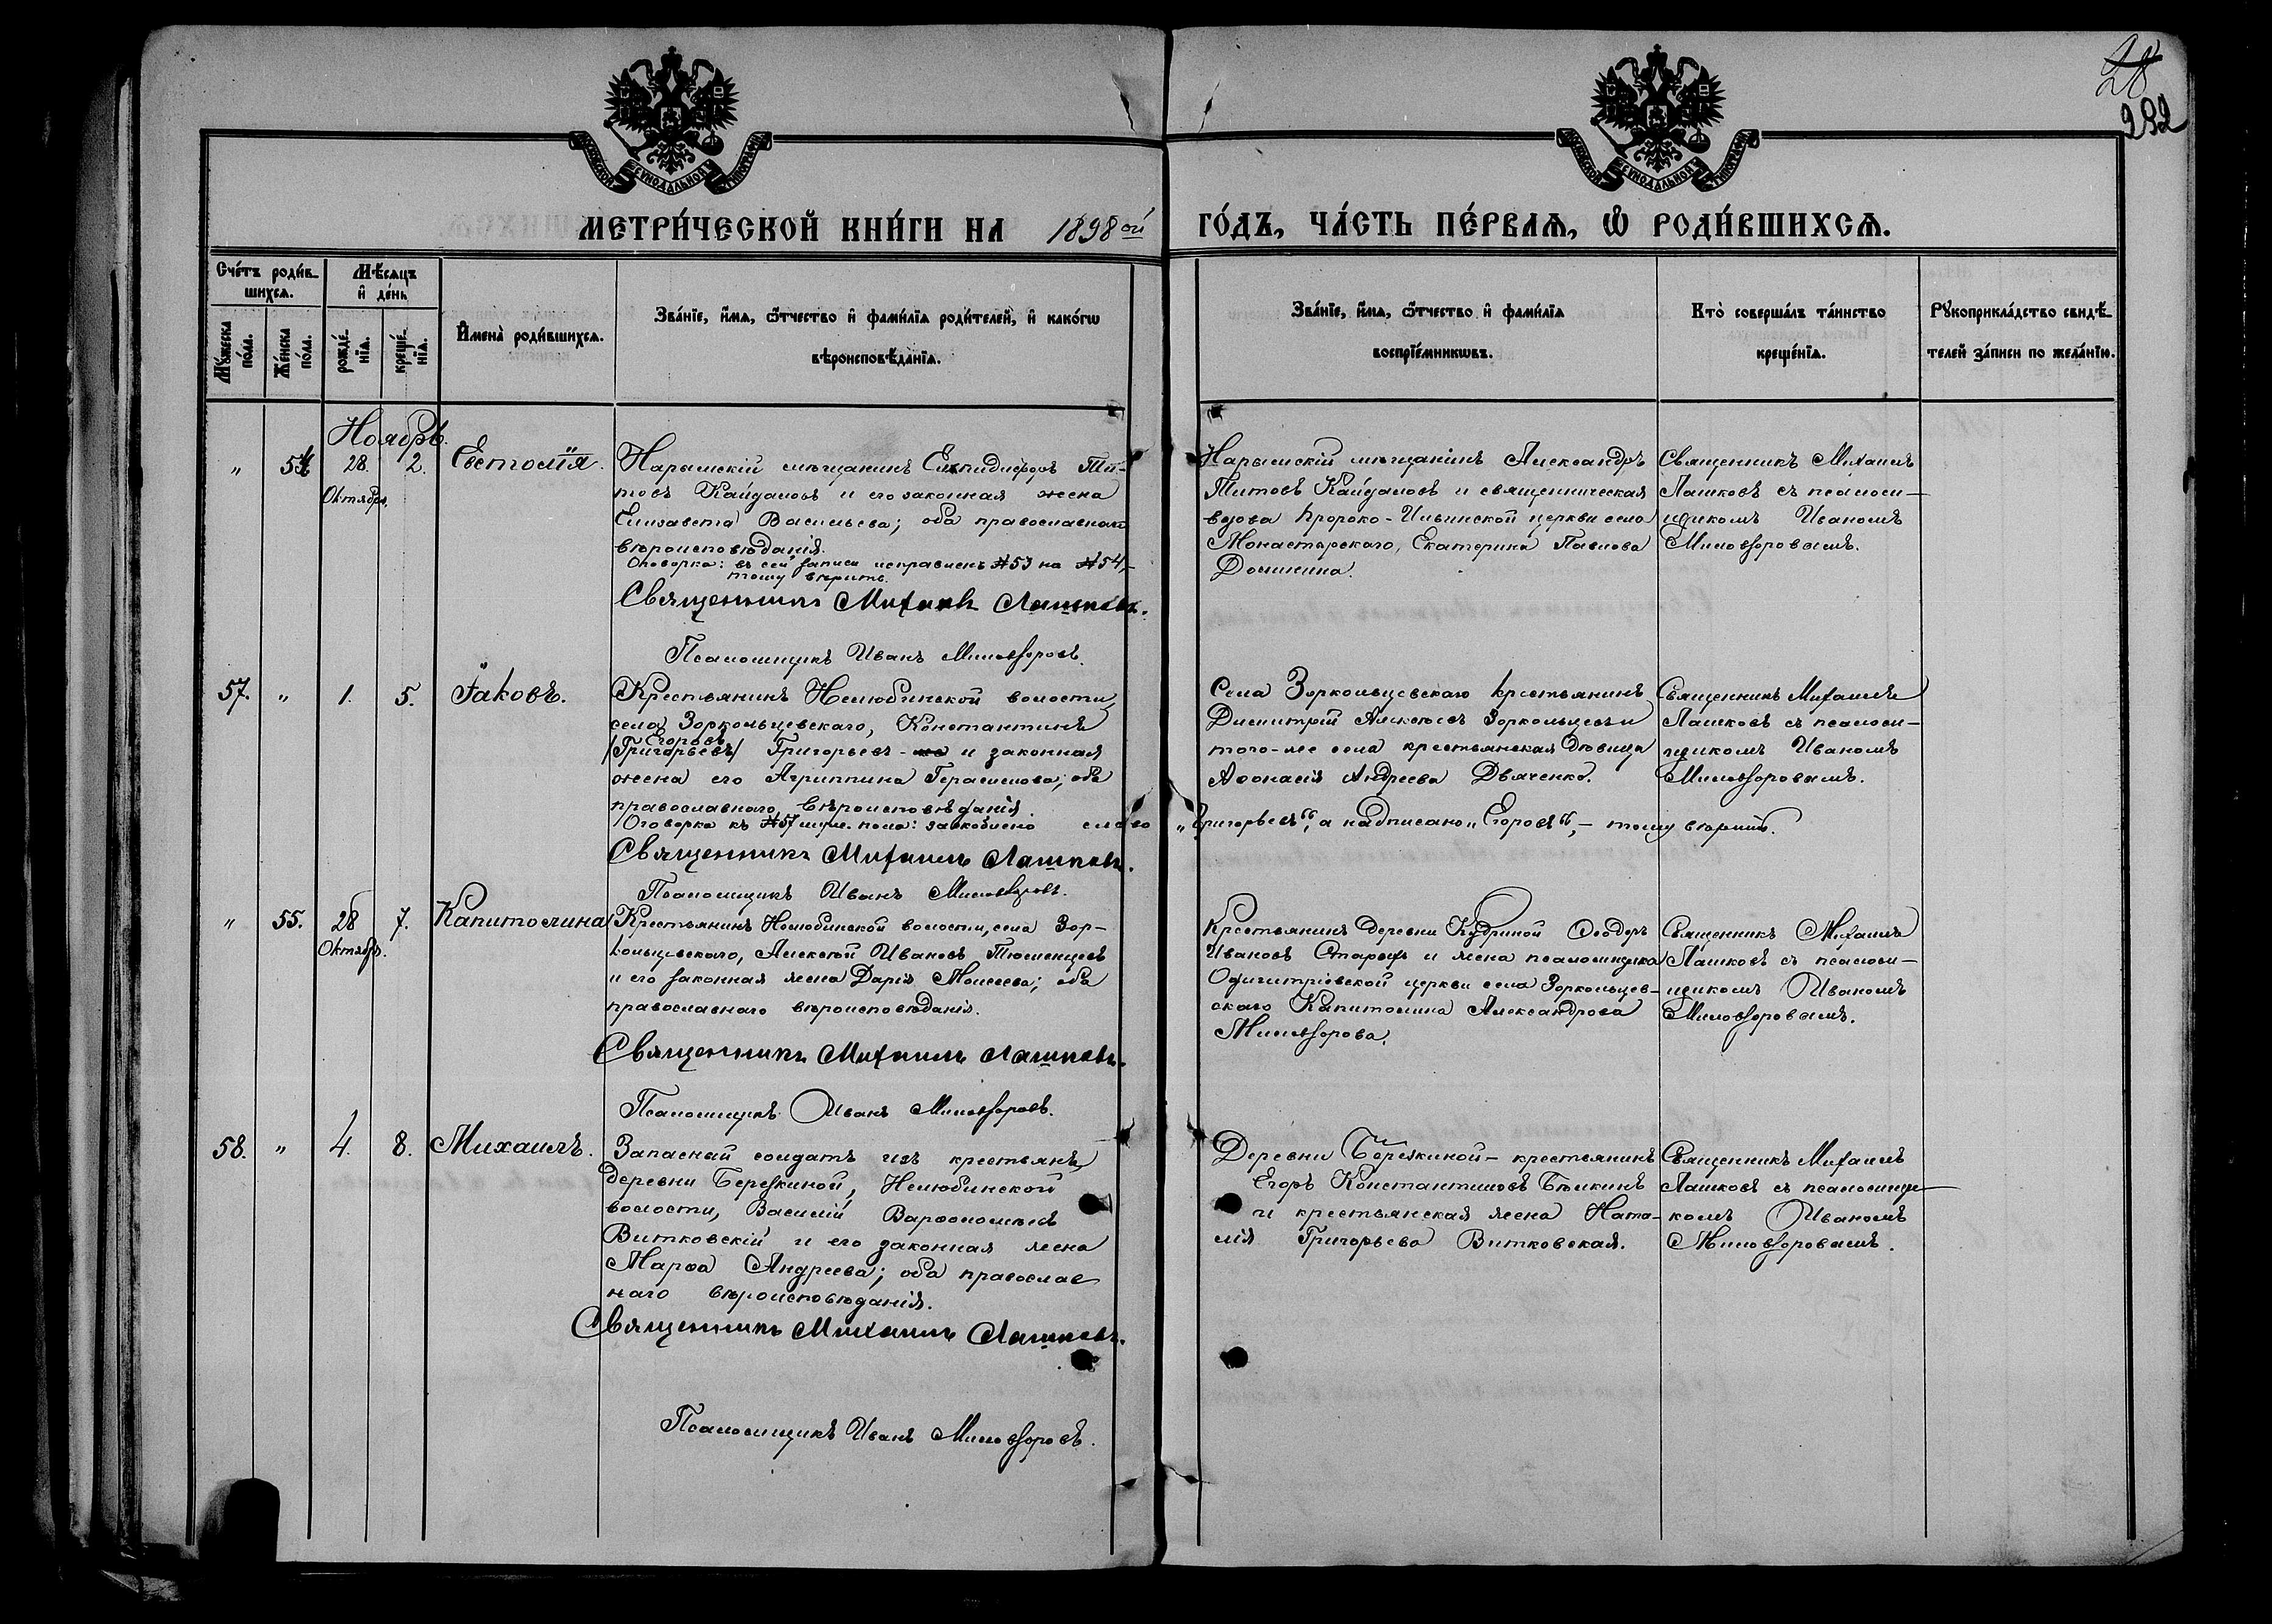 28
282
СѴНОДАЛЬНОЙ
СѴНОДАЛЬНОЙ
МЕТРИ́ЧЕСКОЙ КНИ́ГИ НА 1898ой ГО́ДЪ, ЧА́СТЬ ПЕ́РВАѦ, Ѽ РОДИ́ВШИХСѦ.
Сче́тъ роди́в-
шихсѧ.
Мѣ́сѧцъ
и҆ де́нь
Мꙋ́жеска
по́ла.
Же́нска
по́ла.
рожде́-
нїѧ.
креще́-
нїѧ.
И҆мена̀ роди́вшихсѧ.
Зва́нїе, и҆́мѧ, ѻ҆́тчество и҆ фами́лїѧ роди́телей, и҆ како́гѡ
вѣроисповѣ́данїѧ.
Зва́нїе, и҆́мѧ, ѻ҆́тчество и҆ фами́лїѧ
воспрїе́мникѡвъ.
Кто̀ соверша́лъ та́инство
креще́нїѧ.
Рꙋкоприкла́дство свидѣ́-
телей за́писи по жела́нїю.
Ноябрь.
" 54 28. 2. Евтомія.
Октября.
Нарымскій мѣщанинъ Елпидифоръ Ти-
товъ Кайдаловъ и его законная жена
Елизавета Васильева; оба православнаго
вѣроисповѣданія.
Оговорка: въ сей записи исправленъ №53 на №54,-
тому вѣрить.
Священникъ Михаилъ Лашковъ.
Псаломщикъ Иванъ Миловзоровъ.
Нарымскій мѣщанинъ Александръ
Титовъ Кайдаловъ и священническая
вдова Пророко-Ильинской церкви села
Монастырскаго, Екатерина Павлова
Священникъ Михаилъ
Лашковъ съ псаломщи-
комъ Иваномъ
Миловзоровымъ.
57. " 1. 5. Іаковъ.
Крестьянинъ Нелюбинской волости,
села Зоркольцевскаго, Константинъ
Егоровъ
(Григорьевъ) Григорьевъ - и законная
жена его Агриппина Герасимова; оба
православнаго вѣроисповѣданія.
Оговорка къ №57 муж. пола: заскоблено слово „Григорьевъ“, а надписано „Егоровъ“, - тому вѣрить.
Священникъ Михаилъ Лашковъ.
Псаломщикъ Иванъ Миловзоровъ.
Села Зоркольцевскаго крестьянинъ
Димитрій Алексѣевъ Зоркольцевъ и
того-же села крестьянская дѣвица
Аѳонасія Андреева Дьяченко.
Священникъ Михаилъ
Лашковъ съ псалом-
щикомъ Иваномъ
Миловзоровымъ.
" 55. 28 7. Капитолина
Октябр.
Крестьянинъ Нелюбинской волости, села Зор-
кольцевскаго, Алексѣй Ивановъ Тюменцевъ
и его законная жена Дарія Моисеева; оба
православнаго вѣроисповѣданія.
Священникъ Михаилъ Лашковъ.
Псаломщикъ Иванъ Миловзоровъ.
Крестьянинъ деревни Кудриной Ѳеодоръ
Ивановъ и жена псаломщика
Одигитріевской церкви села Зоркольцев-
скаго Капитолина Александрова
Миловзорова.
Священникъ Михаилъ
Лашковъ съ псалом-
щикомъ Иваномъ
Миловзоровымъ.
58. " 4. 8. Михаилъ.
Запасный солдатъ изъ крестьянъ
деревни Березкиной, Нелюбинской
волости, Василій Варѳоломѣевъ
Витковскій и его законная жена
Марѳа Андреева; оба православ
наго вѣроисповѣданія.
Священникъ Михаилъ Лашковъ.
Псаломщикъ Иванъ Миловзоровъ.
Деревни Березкиной - крестьянинъ
Егоръ Константиновъ Бѣлкинъ
и крестьянская жена Ната-
лія Григорьева Витковская.
Священникъ Михаилъ
Лашковъ съ псаломщи-
комъ Иваномъ
Миловзоровымъ.